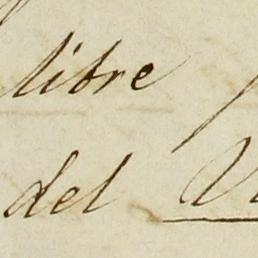 libre
del